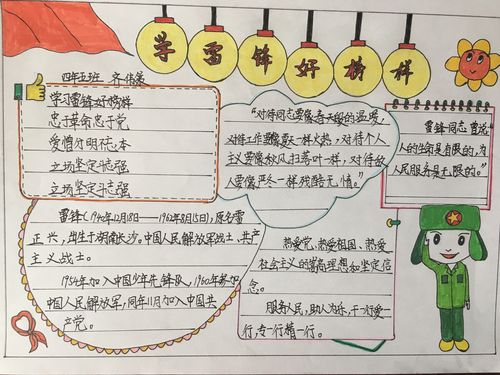 学雷锋好榜样
四年五班 齐
学习雷锋好榜样
忠于革命忠于党
爱憎分明不忘本
立场坚定斗志强
立场坚定斗志强
"对待同志要像春天般的温暖,
对待工作要像夏天一样火热,对待个人
主义要像秋风扫落叶一样,对待敌
人要像严冬一样残酷无情。"
雷锋同志曾说:
人的生命是有限的,为
人民服务是无限的。"
雷锋(1940年12月18日——1962年8月15日),原名雷
正兴,出生于湖南长沙。中国人民解放军战士、共产
主义战士。
1954年加入中国少年先锋队,1960年参加
中国人民解放军,同年11月加入中国共
产党。
热爱党、热爱祖国、热爱
社会主义的崇高理想和坚定信
念。
服务人民,助人为乐,干一行爱一
行,专一行精一行。